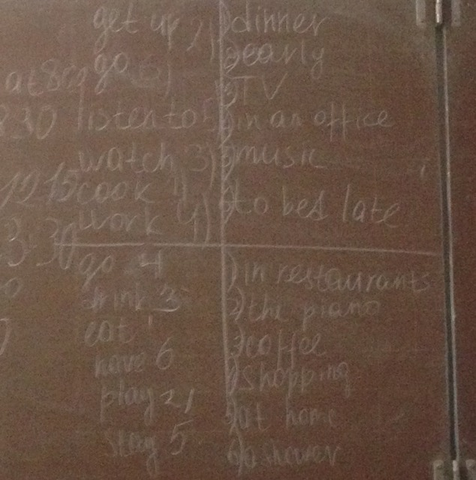 get up 2) 1) dinner
go 6) 2) early
at 8 3) TV
8 30 listen to 5) 4) in an office
watch 3) 5) music
12 15 cook 1) 6) to bed late
work 4)
3:30
go 4 1) in restaurants
drink 3 2) the piano
eat 1 3) coffee
have 6 4) shopping
play 2 5) at home
stay 5 6) a shower